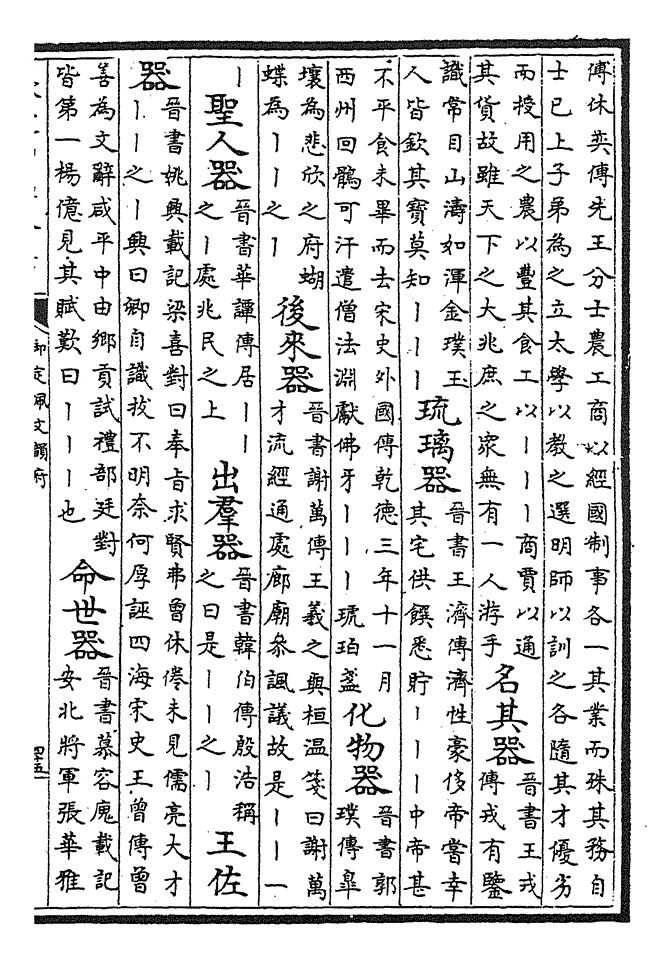 傅休奕傳先王分士農工商以經國制事各一其業而殊其務自
士已上子弟為之立太學以教之選明師以訓之各隨其才優劣
而授用之農以豐其食工以丨丨丨商賈以通
其貨故雖天下之大兆庶之衆無有一人游手
名其器
晉書王戎
傳戎有鑒
識常目山濤如渾金璞玉
人皆欽其寶莫知丨丨丨
琉璃器
晉書王濟傳濟性豪侈帝嘗幸
其宅供饌悉貯丨丨丨中帝甚
不平食未畢而去宋史外國傳乾德三年十一月
西州回鶻可汗遣僧法淵獻佛牙丨丨丨琥珀盞
化物器
晉書郭
璞傳皐
壤為悲欣之府蝴
蝶為丨丨之丨
後來器
晉書謝萬傳王羲之與桓温箋曰謝萬
才流經通處廊廟叅諷議故是丨丨一
丨
聖人器
晉書華譚傳居丨丨
之丨處兆民之上
出羣器
晉書韓伯傳殷浩稱
之曰是丨丨之丨
王佐
器
晉書姚興載記梁喜對曰奉旨求賢弗曾休倦未見儒亮大才
丨丨之丨興曰卿自識拔不明奈何厚誣四海宋史王曾傳曾
善為文辭咸平中由鄉貢試禮部廷對
皆第一楊億見其賦歎曰丨丨丨也
命世器
晉書慕容廆載記
安北將軍張華雅
御定佩文韻府
四十五